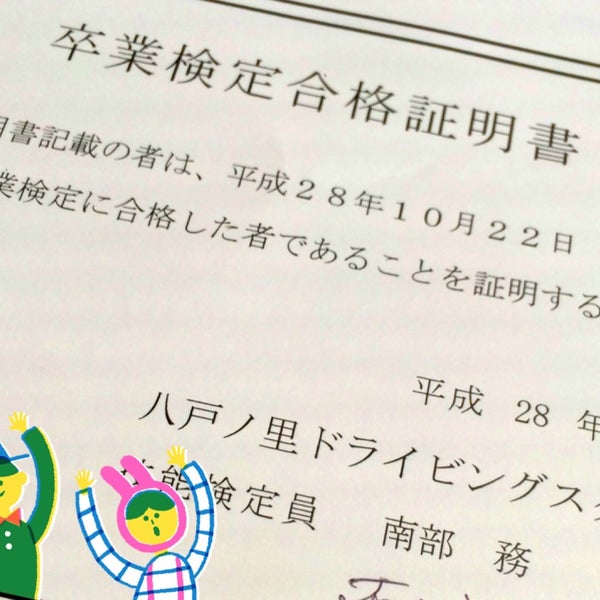 卒業検定合格証明書
明書記載の者は、平成28年10月22日
業検定に合格した者であることを証明する
平成 28 年
八戸ノ里ドライビングス
技能検定員 南部 務